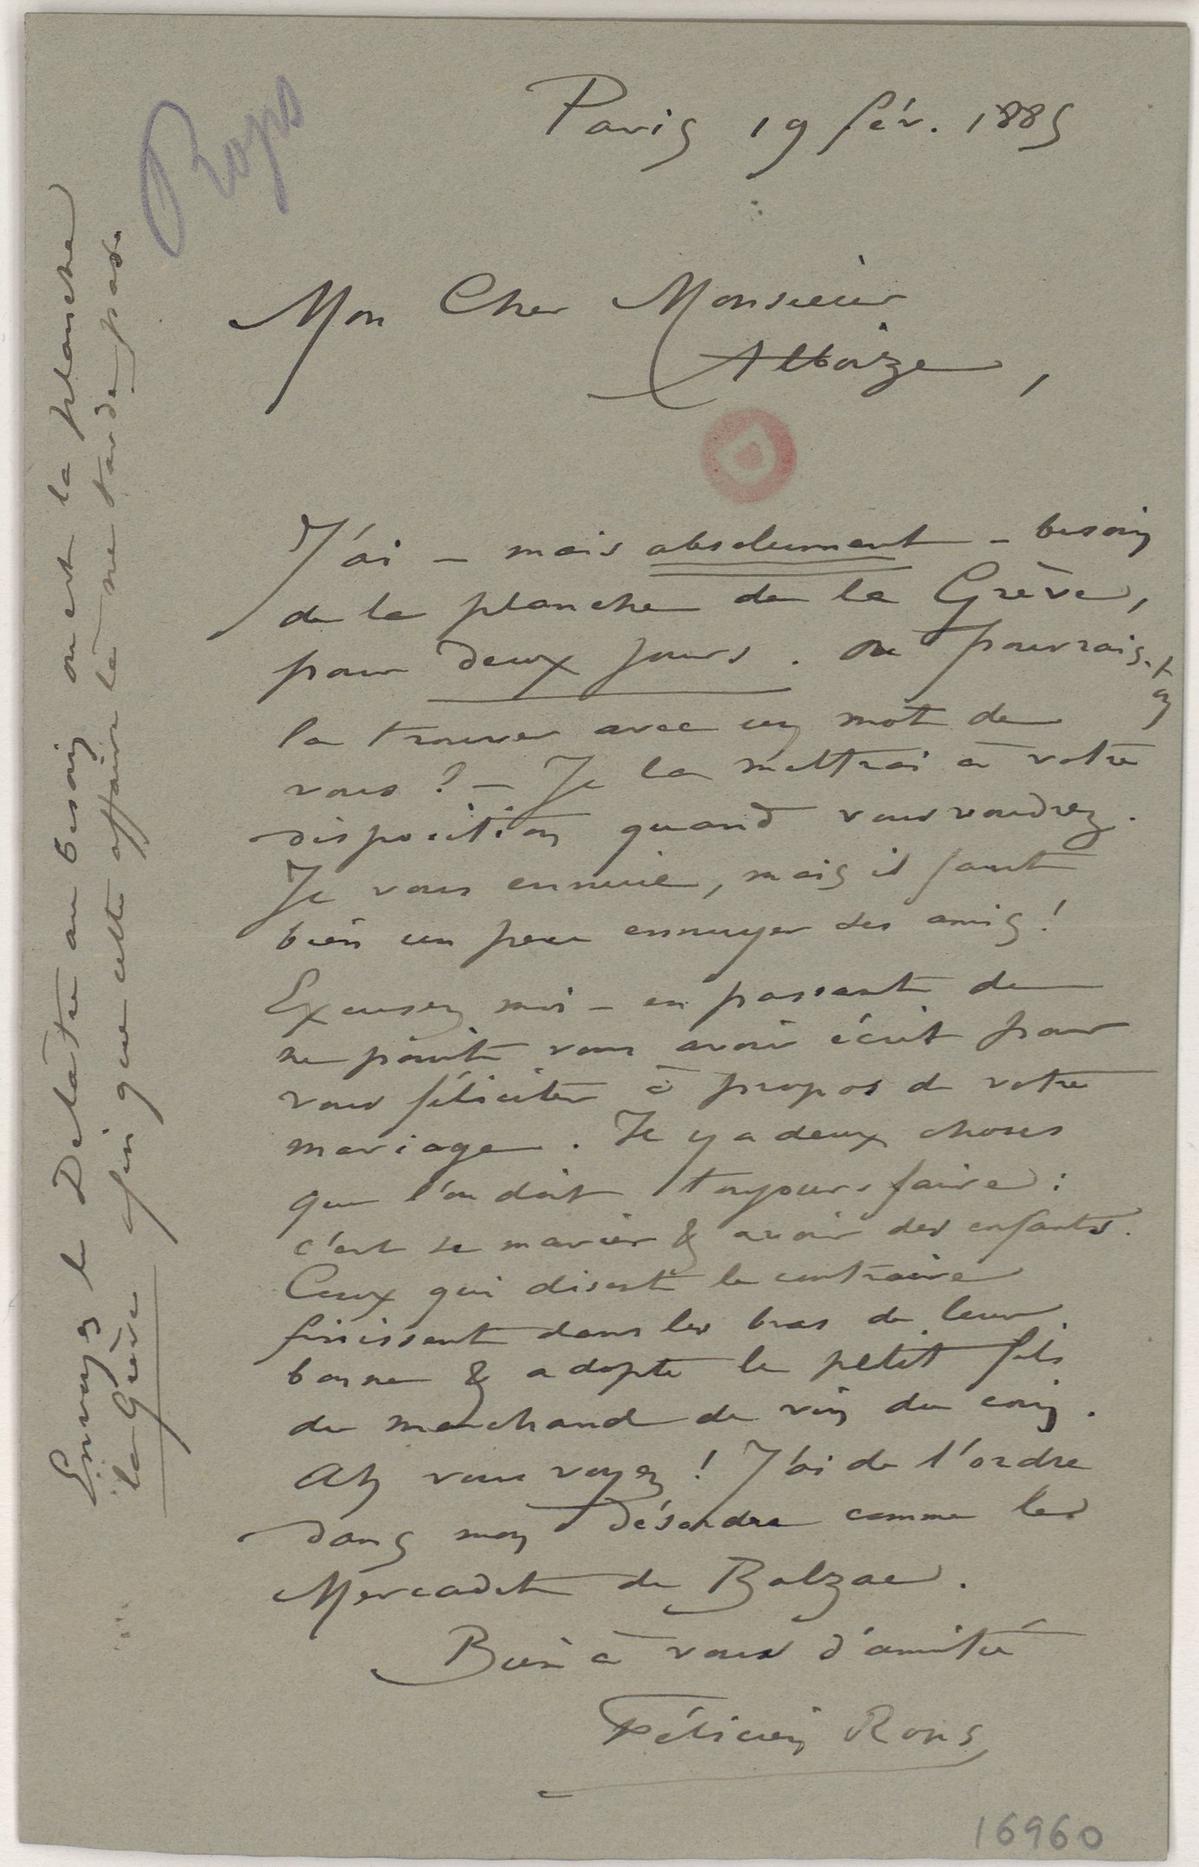 Rops
Paris 19 fév. 1885
Mon Cher Monsieur
Alboize,
J'ai – mais absolument – besoin
de la planche de la Grève,
pour deux jours. Où pourrais-t-on
la trouver avec un mot de
vous ? – Je la mettrai à votre
disposition quand vous voudrez.
Je vous ennuie, mais il faut
bien un peu ennuyer ses amis !
Excusez moi – en passant de
ne point vous avoir écrit pour
vous féliciter à propos de votre
mariage. Il y a deux choses
que l'on doit toujours faire :
c'est se marier & avoir des enfants.
Ceux qui disent le contraire
finissent dans les bras de leur
bonne & adopte le petit fils
du marchand de vin du coin.
Ah vous voyez ! J'ai de l'ordre
dans mon désordre comme le
Mercadet de Balzac.
Bien à vous d'amitié
Félicien Rops
16960
Envoyez le Delâtre au besoin où est la planche
la Grève afin que cette affaire là ne tarde pas.